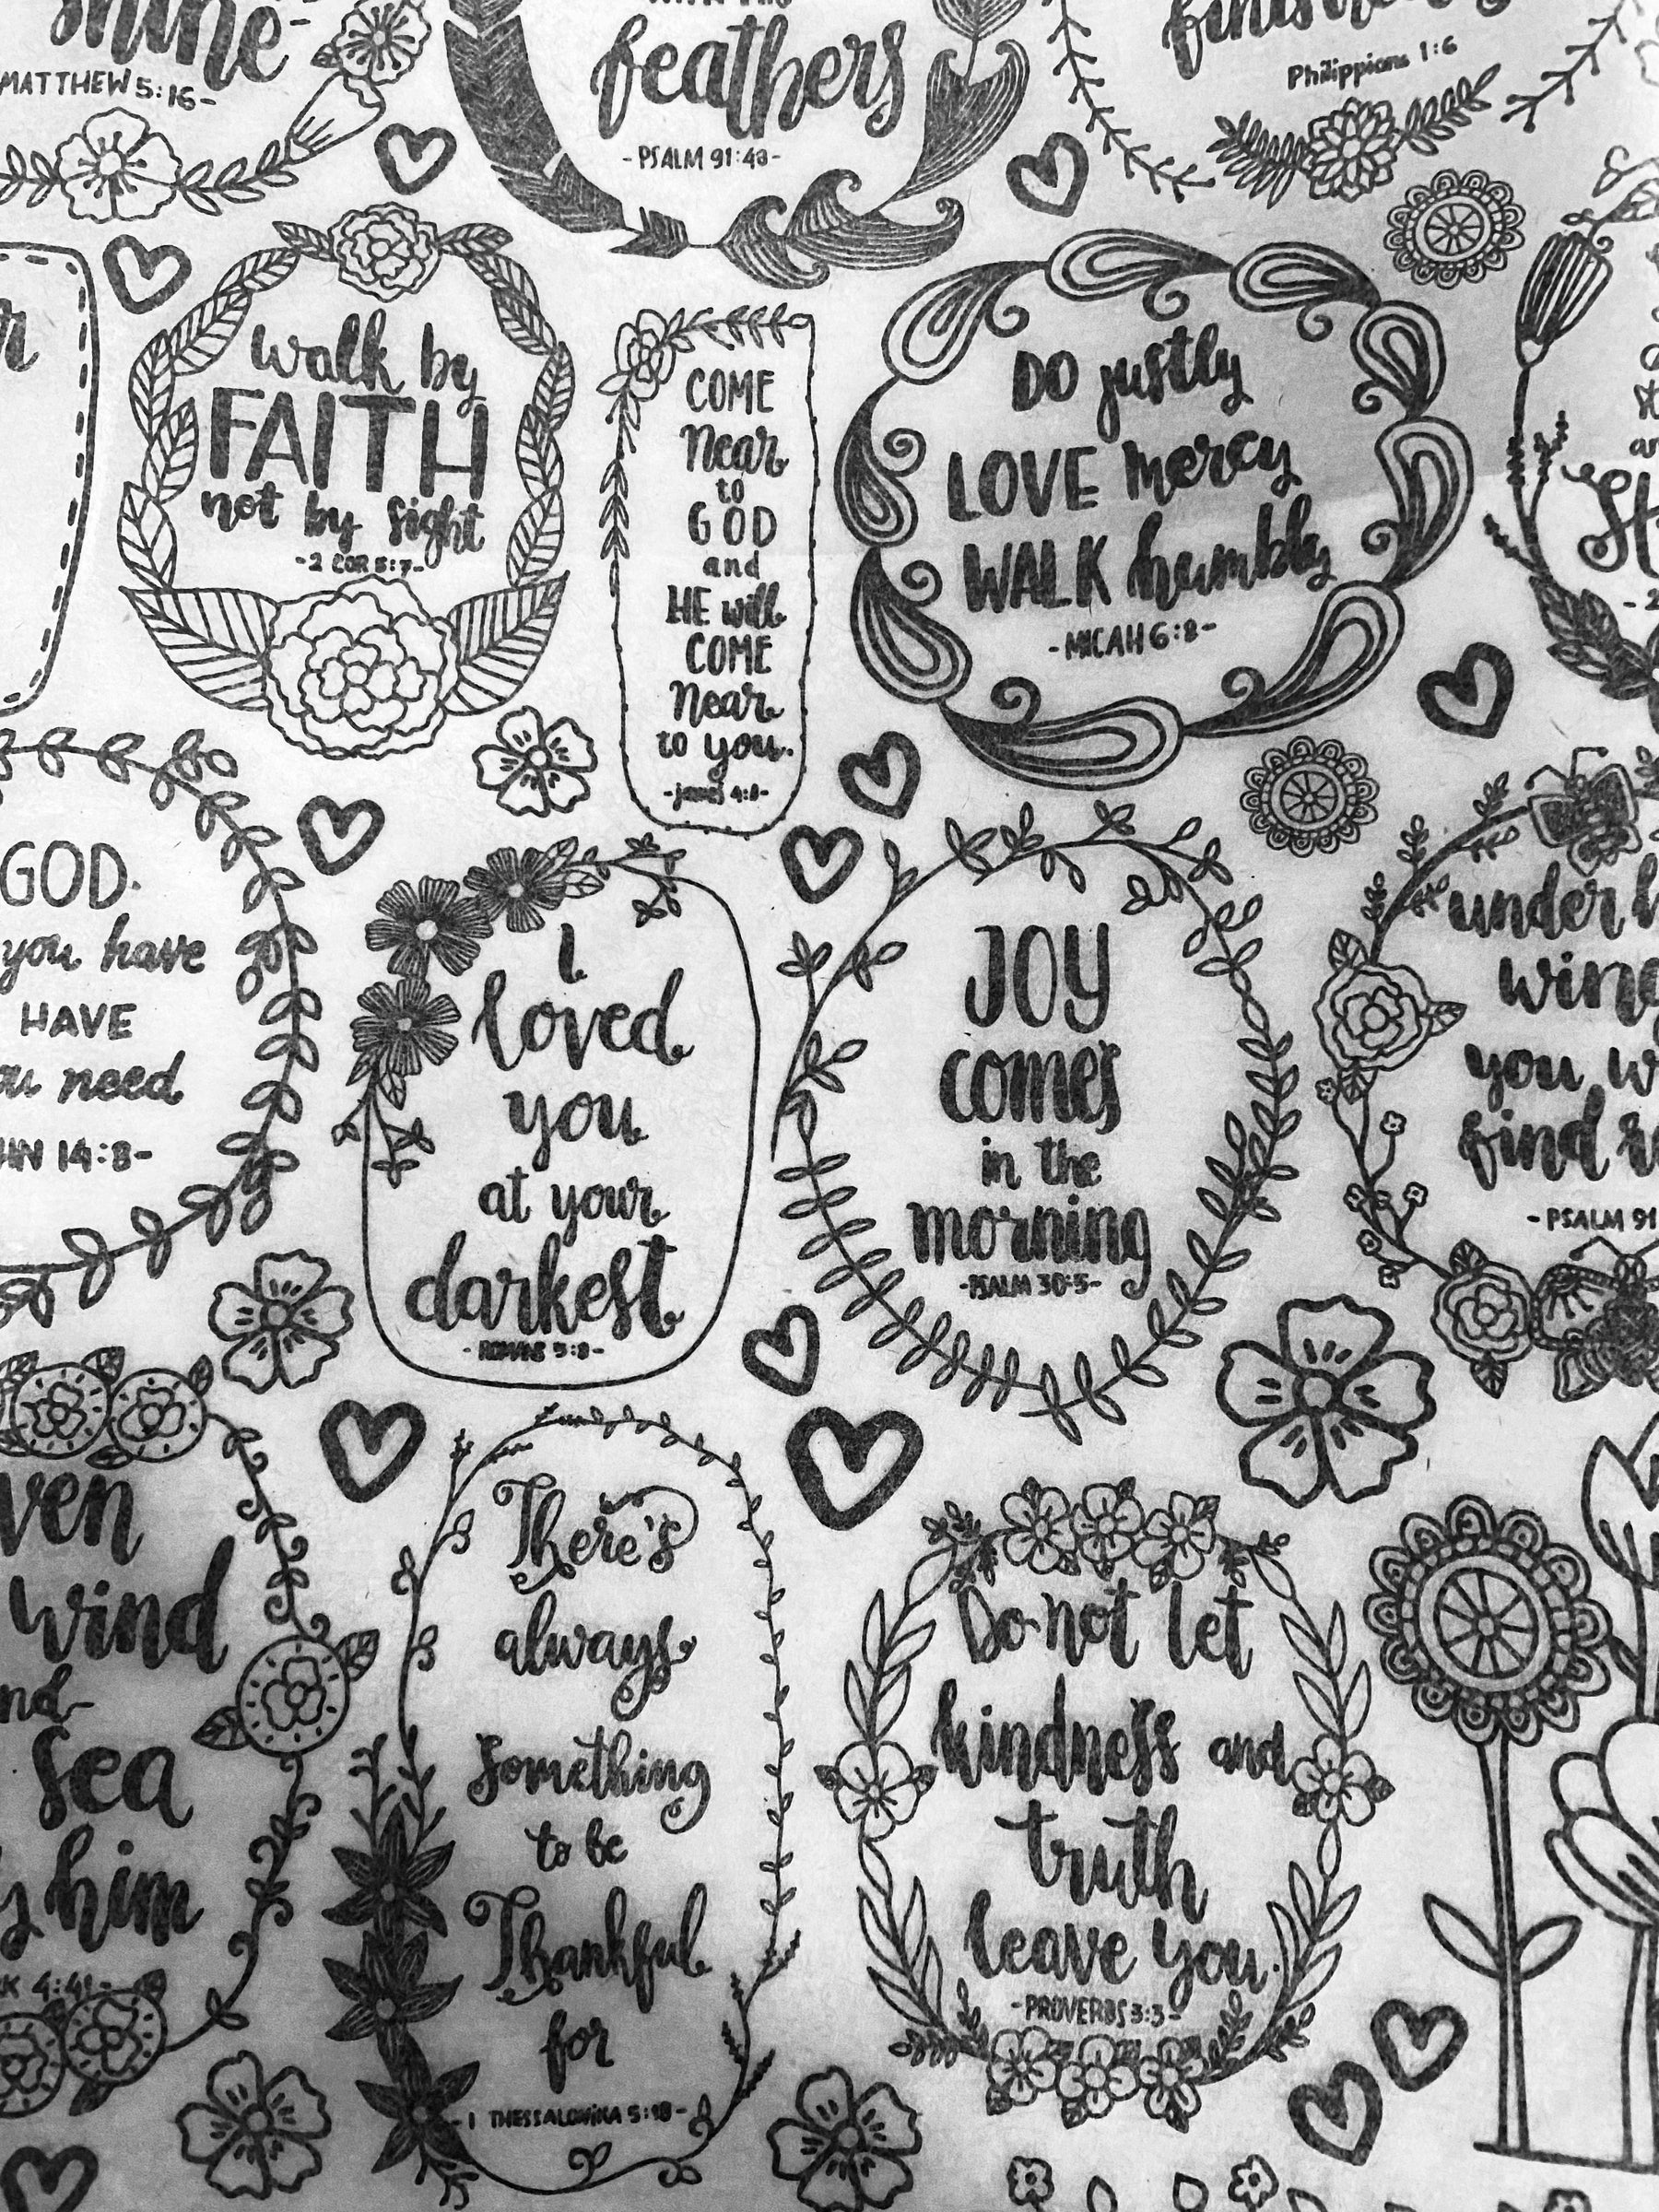 shine
MATTHEW 5:16-
feathers
-PSALM 91:4a-
Philippians 1:6
walk by
FAITH
not by sight
-2 COR 5:7-
COME
Near
to
GOD
and
HE will
COME
Near
to you.
-james 4:8-
DO justly
LOVE mercy
WALK humbly
-MICAH 6:8-
GOD.
you have
HAVE
need
14:8-
I
loved
you
at your
darkest
-ROMANS 5:8-
JOY
comes
in the
morning
-PSALM 30:5-
under
you
find
-PSALM 91
wind
sea
him
4:41-
There's
always
Something
to be
Thankful
for
-1 THESSALONIKA 5:18-
Do not let
kindness and
truth
leave you.
-PROVERBS 3:3-